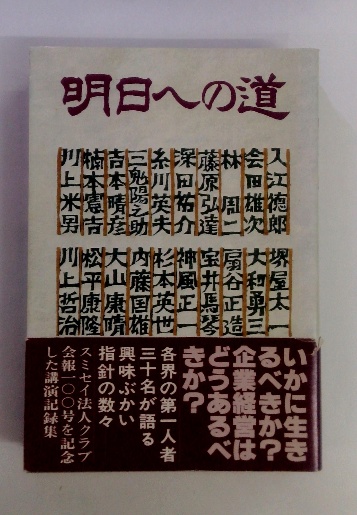 明日への道
入江徳郎
会田雄次
林周二
藤原弘達
深田祐介
糸川英夫
三鬼陽之助
吉本晴彦
楠本憲吉
川上米男
堺屋太一
大和勇三
扇谷正造
宝井馬琴
神風正一
杉本英世
内藤国雄
大山康晴
松平康隆
川上哲治
いかに生き
るべきか?
企業経営は
どうあるべ
きか?
各界の第一人者
三十名が語る
興味ぶかい
指針の数々
スミセイ法人クラブ
会報一〇〇号を記念
した講演記録集